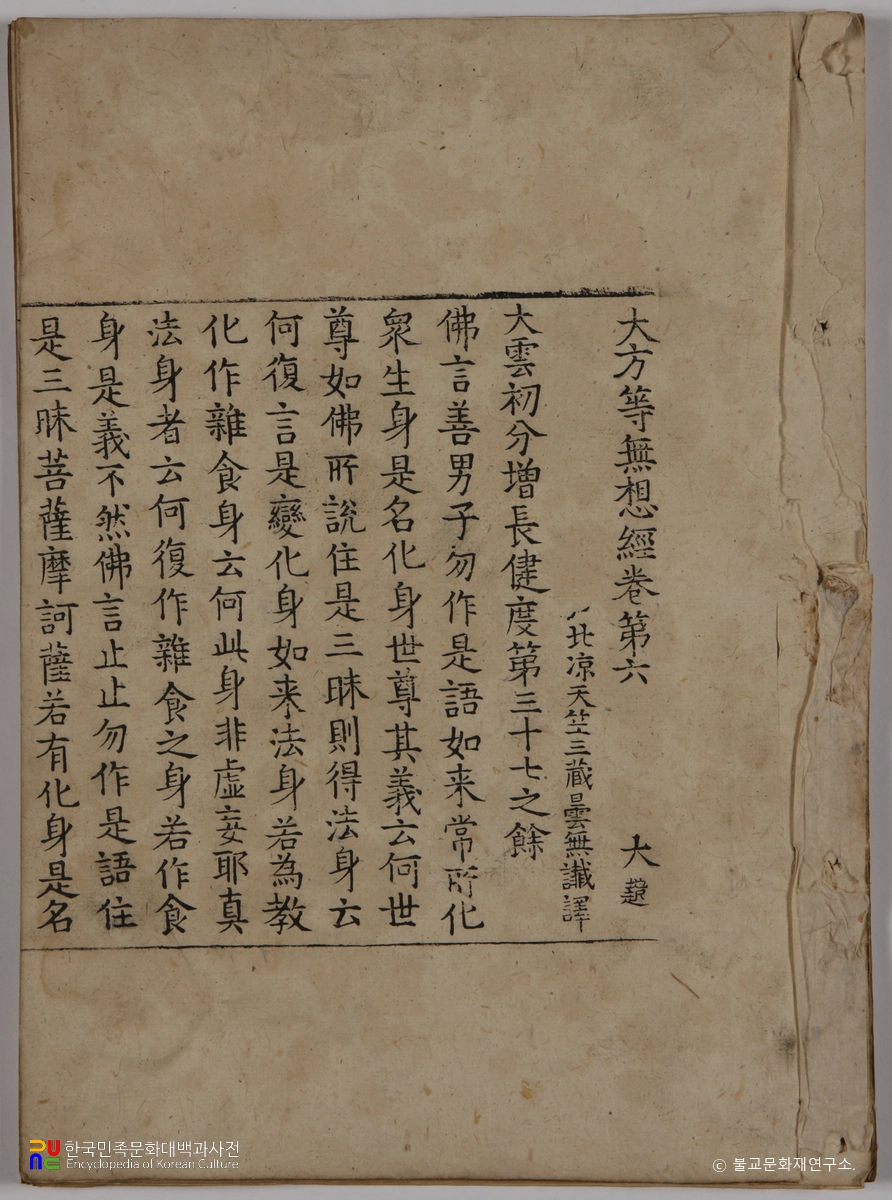 大方等無想經卷第六 大
北凉天竺三藏曇無讖譯
大雲初分增長健度第三十七之餘
佛言善男子勿作是語如来常所化
衆生身是名化身世尊其義云何世
尊如佛所說住是三昧則得法身云
何復言是變化身如来法身若為教
化作雜食身云何此身非虛妄耶真
法身者云何復作雜食之身若作食
身是義不然佛言止止勿作是語住
是三昧菩薩摩訶薩若有化身是名
한국민족문화대백과사전
Encyclopedia of Korean Culture
© 불교문화재연구소.